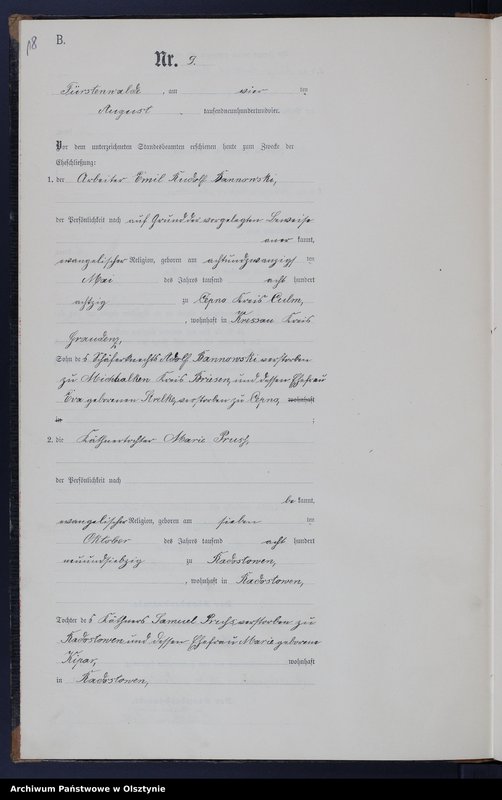 98
B.
Nr. 9.
Fürstenwalde, am vier ten
August tausendneunhundertundvier.
Vor dem unterzeichneten Standesbeamten erschienen heute zum Zwecke der
Eheschließung:
1. der Arbeiter Emil Rudolf Dannowski,
der Persönlichkeit nach auf Grund des vorgelegten Beweise
aner kannt,
evangelischer Religion, geboren am achtundzwanzigs ten
Mai des Jahres tausend acht hundert
achtzig zu Cepno Kreis Culm,
, wohnhaft in Kressau Kreis
Graudenz,
Sohn des Schäferknechts Adolf Dannowski verstorben
zu Michalken Kreis Briesen, und dessen Ehefrau
Eva geborenen verstorben zu Cepno, wohnhaft
in ;
2. die Käthnertochter Marie
der Persönlichkeit nach
be kannt,
evangelischer Religion, geboren am sieben ten
Oktober des Jahres tausend acht hundert
neunundsiebzig zu Radostowen,
, wohnhaft in Radostowen,
Tochter des Käthners Samuel verstorben zu
Radostowen und dessen Ehefrau Marie geborene
Kipar, wohnhaft
in Radostowen,
Archiwum Państwowe w Olsztynie